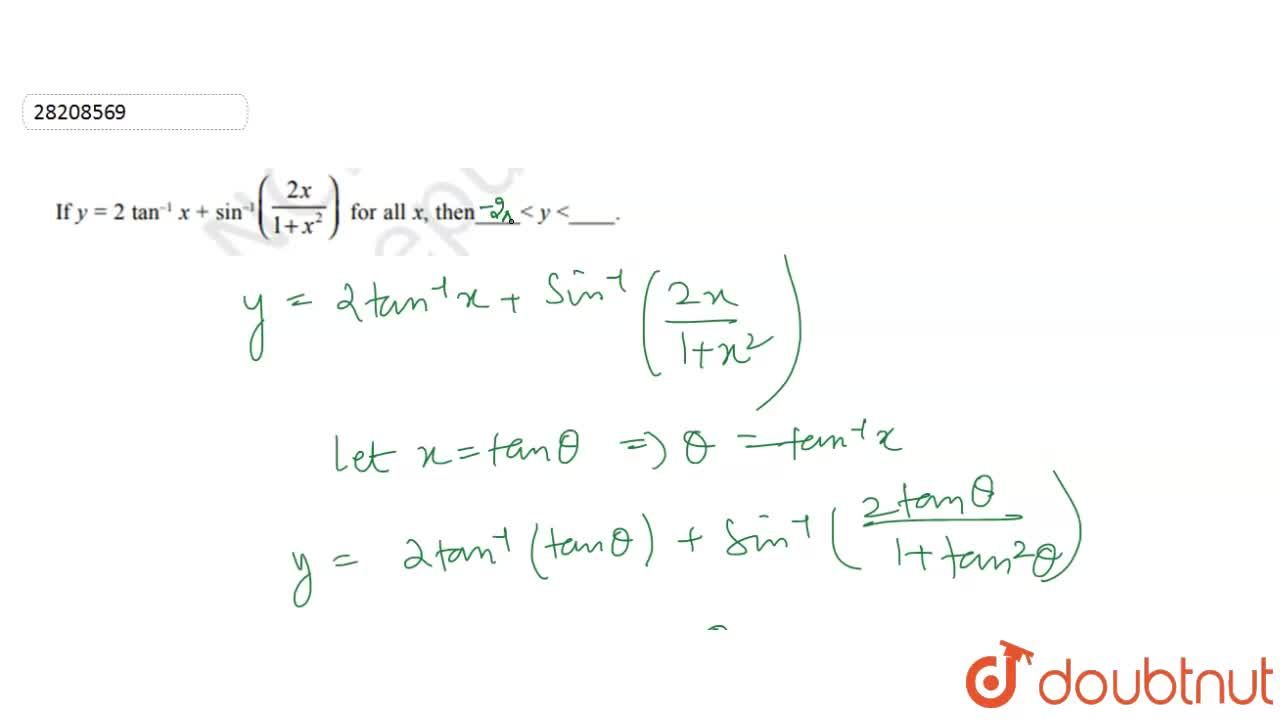 28208569
If y = 2 tan⁻¹ x + sin⁻¹(2x/1+x²) for all x, then -2π < y < ____.
y = 2tan⁻¹x + Sin⁻¹(2x/1+x²)
let x = tanθ ⇒ θ = tan⁻¹x
y = 2tan⁻¹(tanθ) + Sin⁻¹(2tanθ/1+tan²θ)
doubtnut